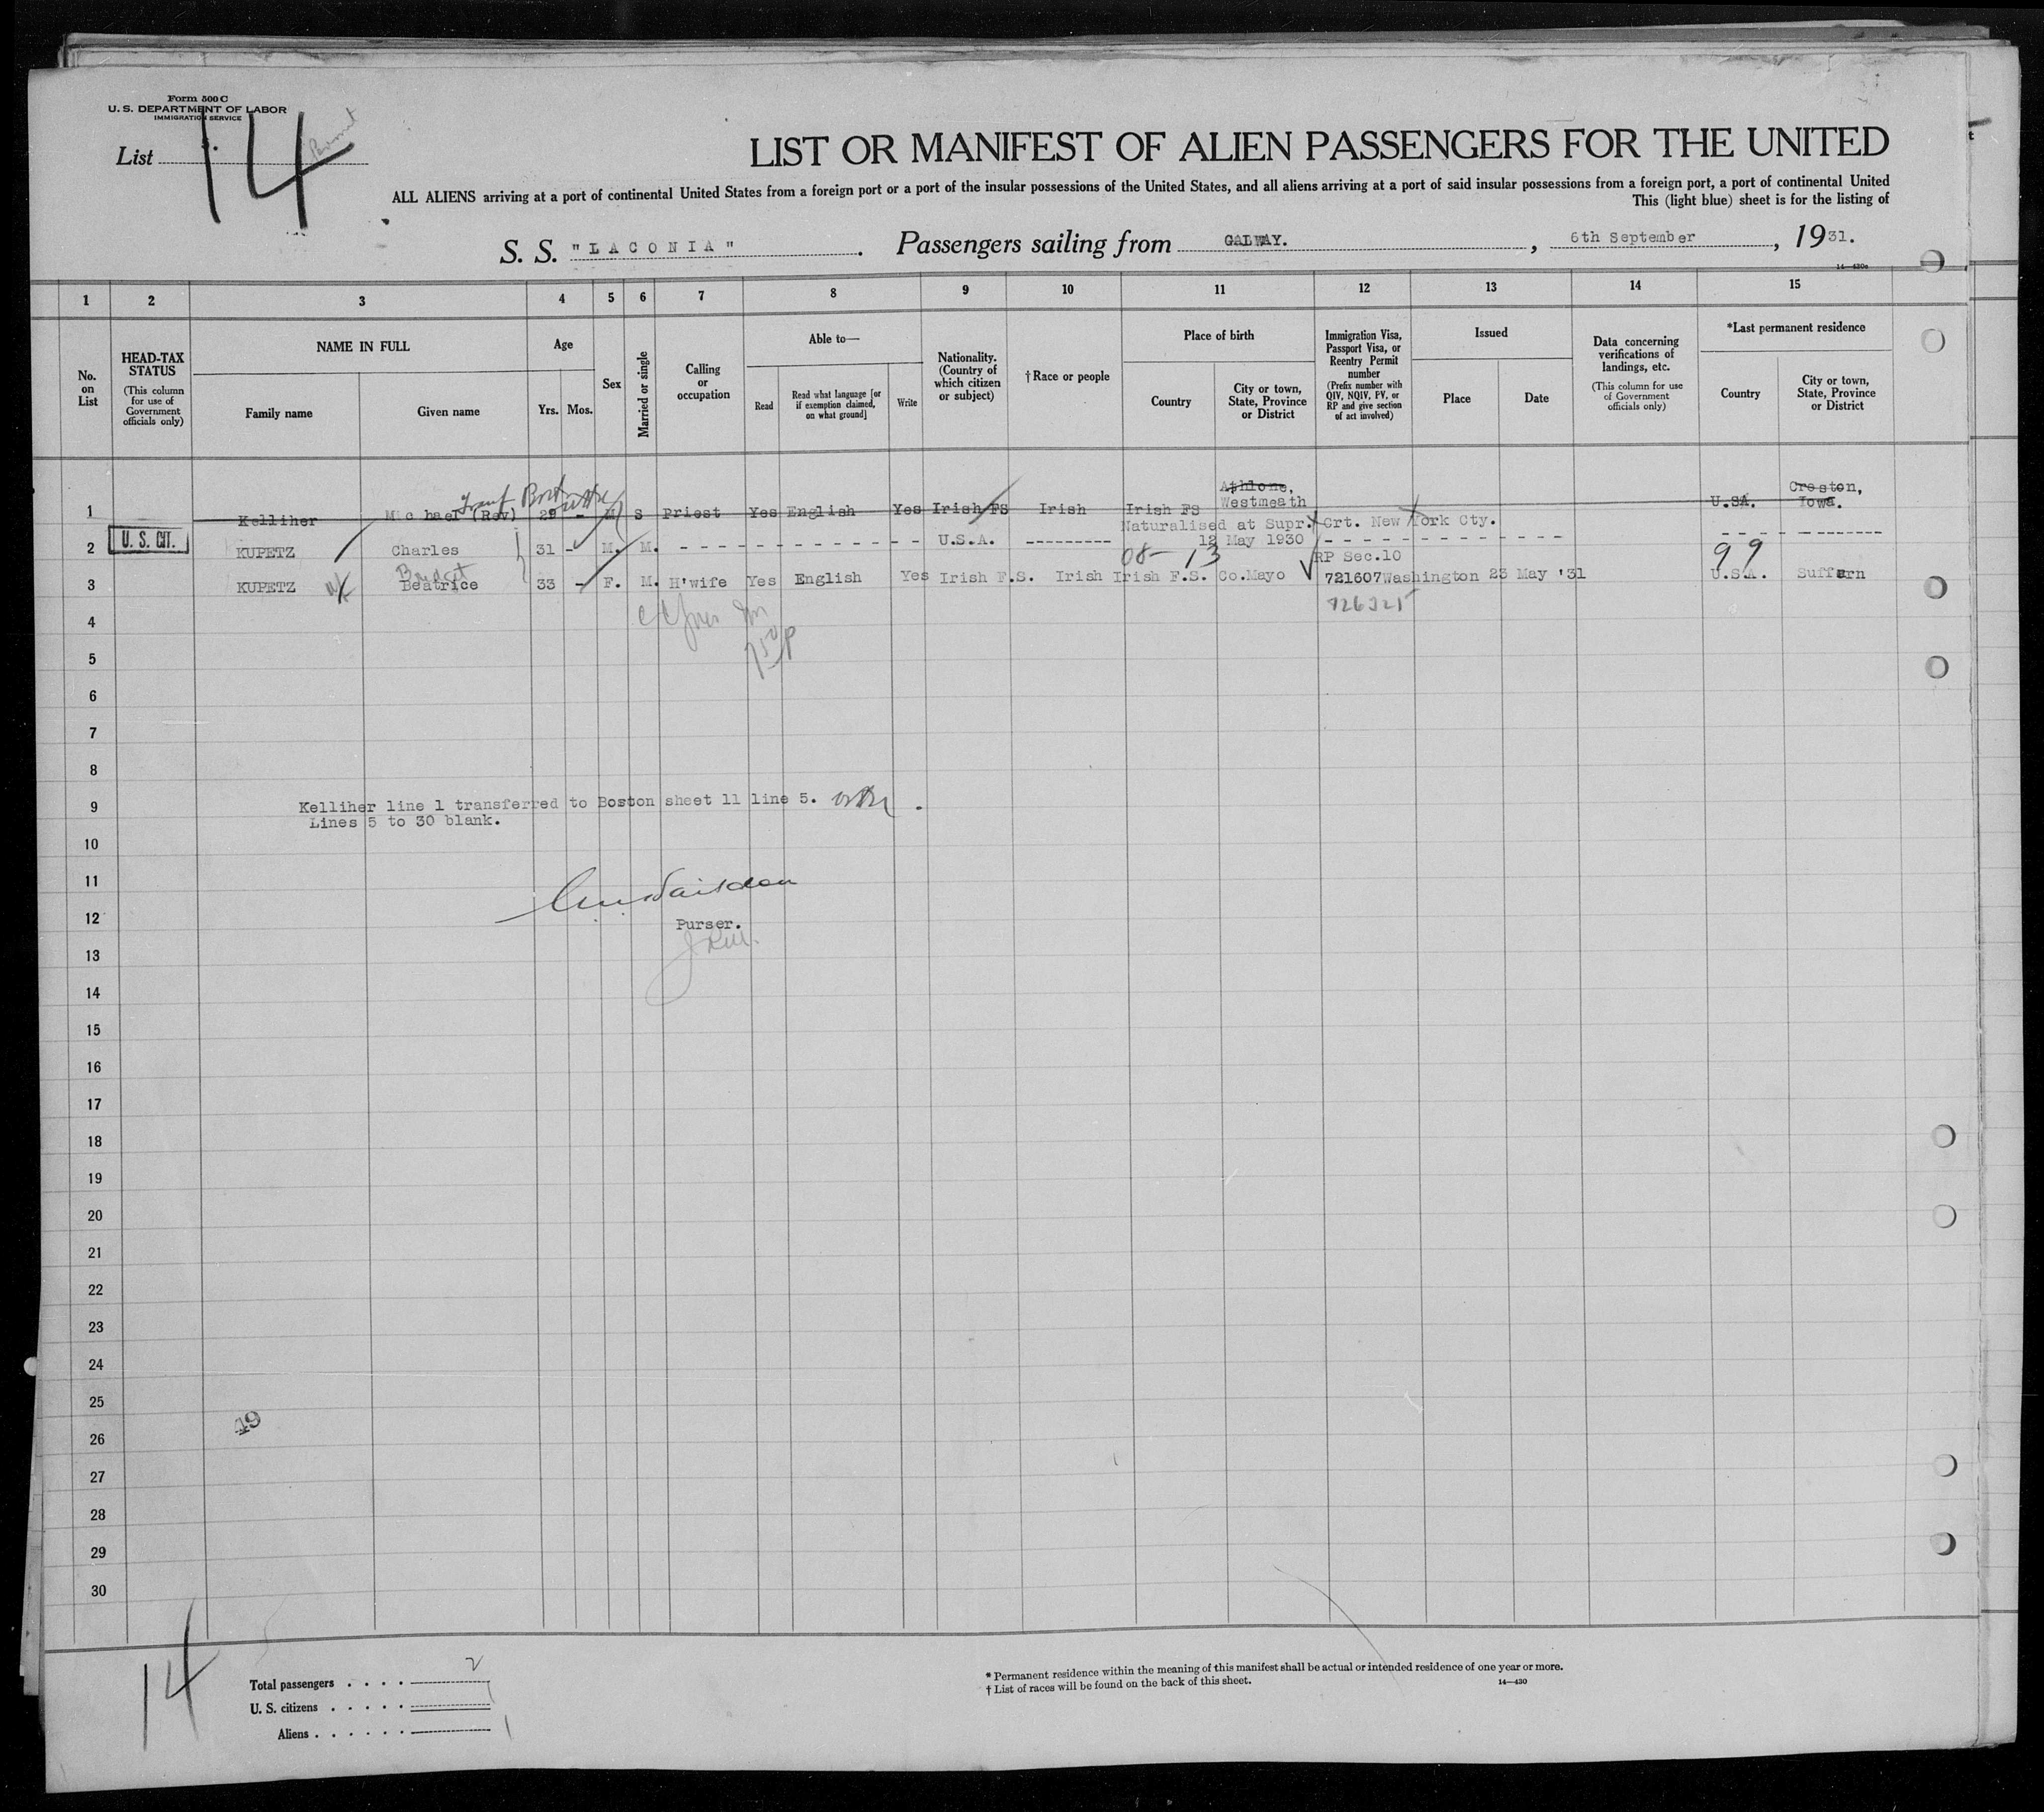 Form 500 C
U. S. DEPARTMENT OF LABOR
IMMIGRATION SERVICE
List 14
LIST OR MANIFEST OF ALIEN PASSENGERS FOR THE UNITED
ALL ALIENS arriving at a port of continental United States from a foreign port or a port of the insular possessions of the United States, and all aliens arriving at a port of said insular possessions from a foreign port, a port of continental United
This (light blue) sheet is for the listing of
S. S. "LACONIA". Passengers sailing from GALWAY., 6th September, 1931.
14—430a
1 2 3 4 5 6 7 8 9 10 11 12 13 14 15
No. on List
HEAD-TAX STATUS (This column for use of Government officials only)
NAME IN FULL
Family name Given name
Age
Yrs. Mos.
Sex
Married or single
Calling or occupation
Able to—
Read Read what language [or if exemption claimed, on what ground] Write
Nationality. (Country of which citizen or subject)
† Race or people
Place of birth
Country City or town, State, Province or District
Immigration Visa, Passport Visa, or Reentry Permit number (Prefix number with QIV, NQIV, PV, or RP and give section of act involved)
Issued
Place Date
Data concerning verifications of landings, etc. (This column for use of Government officials only)
*Last permanent residence
Country City or town, State, Province or District
1 Kelliher Michael (Rev) 29 - M S Priest Yes English Yes Irish FS Irish Irish FS Athlone, Westmeath U.SA. Creston, Iowa.
Naturalised at Supr. Crt. New York Cty.
2 U. S. CIT. KUPETZ Charles 31 - M. M. - - - - - - - - - - - - - - U.S.A. --------- 12 May 1930 - - - - - - - - - - - - - -
08- 13 RP Sec.10 99
Bridget
3 KUPETZ Beatrice 33 - F. M. H'wife Yes English Yes Irish F.S. Irish Irish F.S. Co.Mayo 721607 Washington 23 May '31 U.S.A. Suffern
726325
4
5
6
7
8
9 Kelliher line 1 transferred to Boston sheet 11 line 5.
Lines 5 to 30 blank.
10
11
12 Purser.
13
14
15
16
17
18
19
20
21
22
23
24
25
49
26
27
28
29
30
14
Total passengers . . . . 2
U. S. citizens . . . . . 1
Aliens . . . . . . 1
* Permanent residence within the meaning of this manifest shall be actual or intended residence of one year or more.
† List of races will be found on the back of this sheet.
14—430